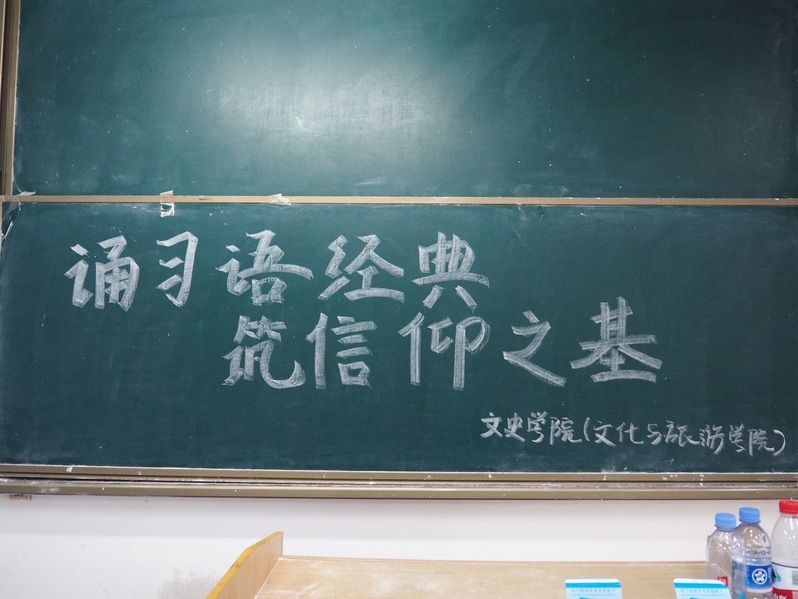 诵习语经典
筑信仰之基
文史学院(文化与旅游学院)